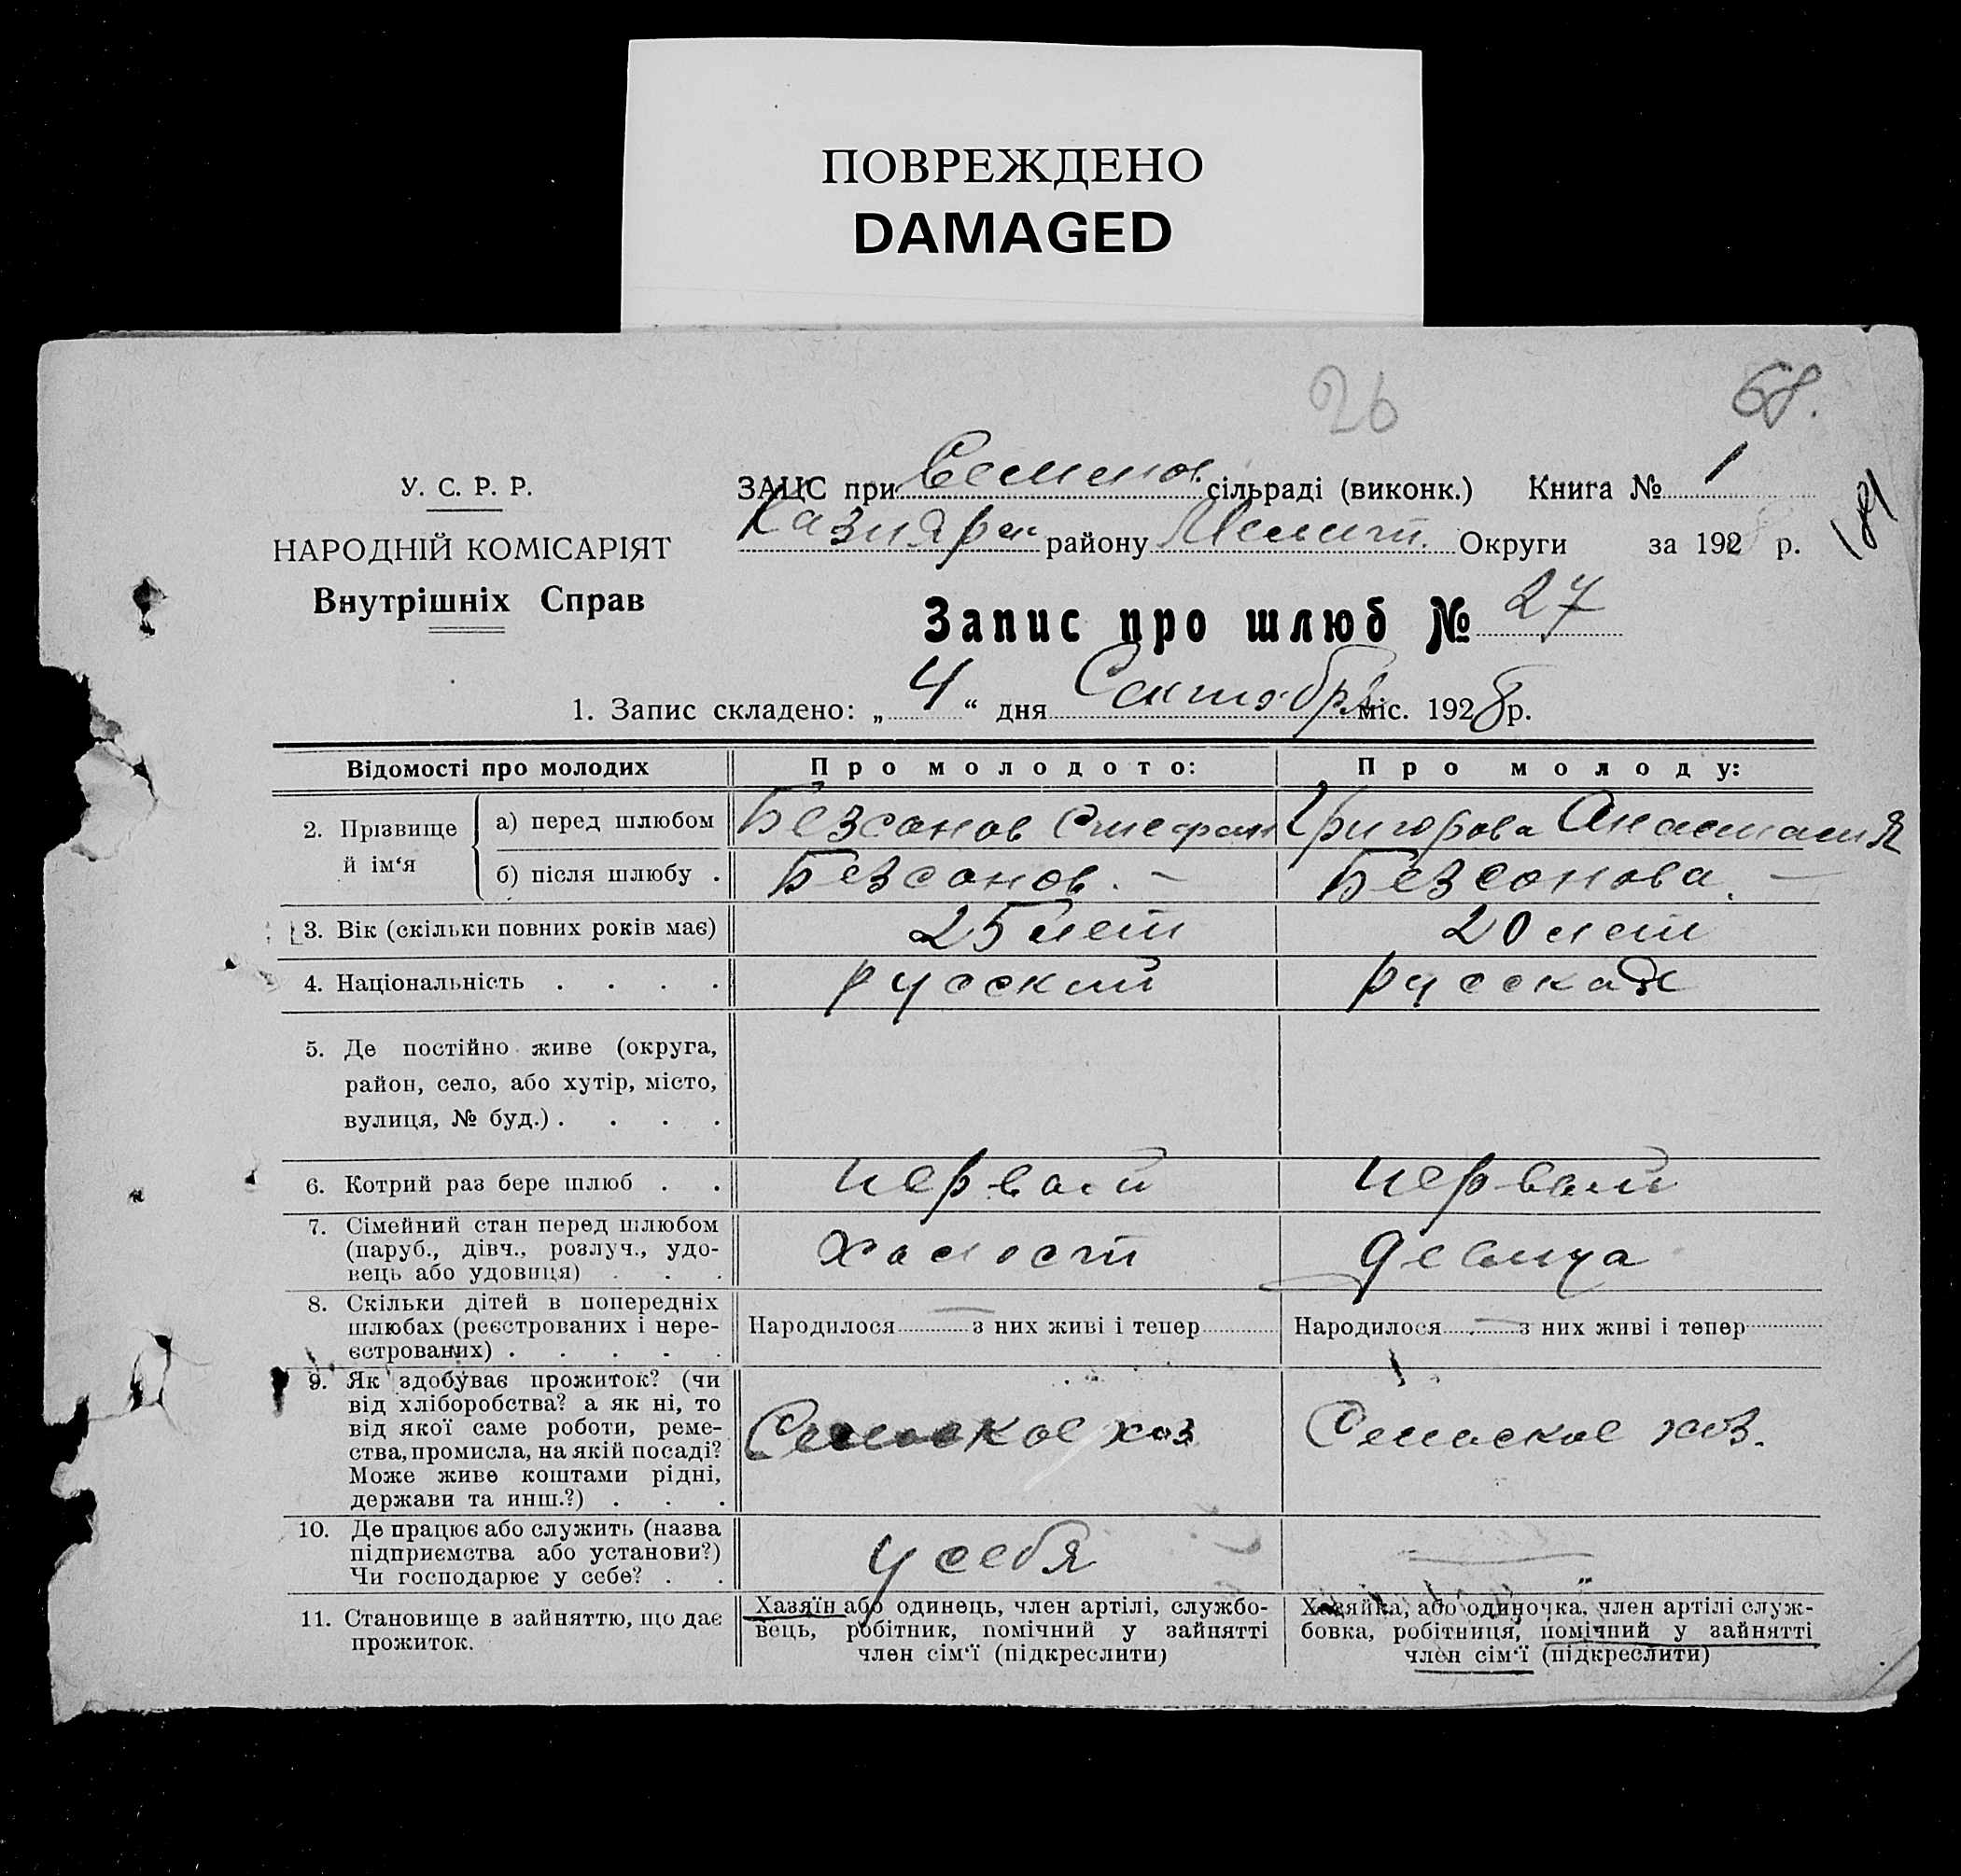 ПОВРЕЖДЕНО
DAMAGED
26
68.
У. С. Р. Р.
НАРОДНІЙ КОМІСАРІЯТ
Внутрішніх Справ
ЗАЦС при Семенов. сільраді (виконк.) Книга № 1
району Мелит. Округи за 1928 р.
Запис про шлюб № 27
1. Запис складено: „ 4 “ дня Сентября міс. 1928 р.
Відомості про молодих
Про молодого:
Про молоду:
2. Прізвище й ім‘я
а) перед шлюбом
Безсонов Стефан
Григорова Анастасия
б) після шлюбу .
Безсонов. —
Безсонова. —
3. Вік (скільки повних років має)
25 лет
20 лет
4. Національність . . . .
русский
русская
5. Де постійно живе (округа,
район, село, або хутір, місто,
вулиця, № буд.) . . . .
6. Котрий раз бере шлюб . .
первый
первый
7. Сімейний стан перед шлюбом
(паруб., дівч., розлуч., удо-
вець або удовиця) . . .
холост
девица
8. Скільки дітей в попередніх
шлюбах (реєстрованих і нере-
єстрованих) . . . . .
Народилося — з них живі і тепер
Народилося — з них живі і тепер
9. Як здобуває прожиток? (чи
від хліборобства? а як ні, то
від якої саме роботи, реме-
ства, промисла, на якій посаді?
Може живе коштами рідні,
держави та инш.?) . . .
Сельское хоз
Сельское хоз.
10. Де працює або служить (назва
підприємства або установи?)
Чи господарює у себе? . .
у себя
—
11. Становище в зайняттю, що дає
прожиток.
Хазяїн або одинець, член артілі, службо-
вець, робітник, помічний у зайнятті
член сім‘ї (підкреслити)
Хазяйка, або одиночка, член артілі служ-
бовка, робітниця, помічний у зайнятті
член сім‘ї (підкреслити)